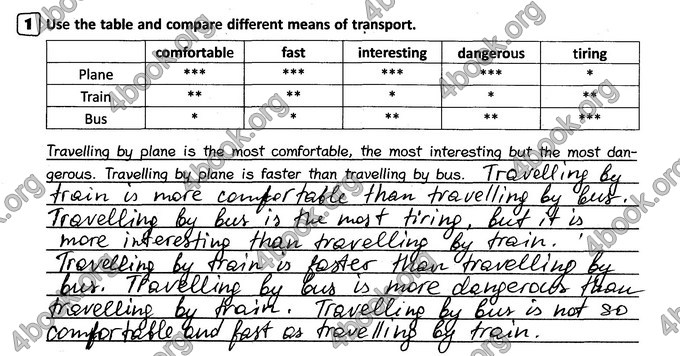 1 Use the table and compare different means of transport.
comfortable fast interesting dangerous tiring
Plane *** *** *** *** *
Train ** ** * * **
Bus * * ** ** ***
Travelling by plane is the most comfortable, the most interesting but the most dan-
gerous. Travelling by plane is faster than travelling by bus. Travelling by
train is more comfortable than travelling by bus.
Travelling by bus is the most tiring, but it is
more interesting than travelling by train.
Travelling by train is faster than travelling by
bus. Travelling by bus is more dangerous than
travelling by train. Travelling by bus is not so
comfortable and fast as travelling by train.
4book.org